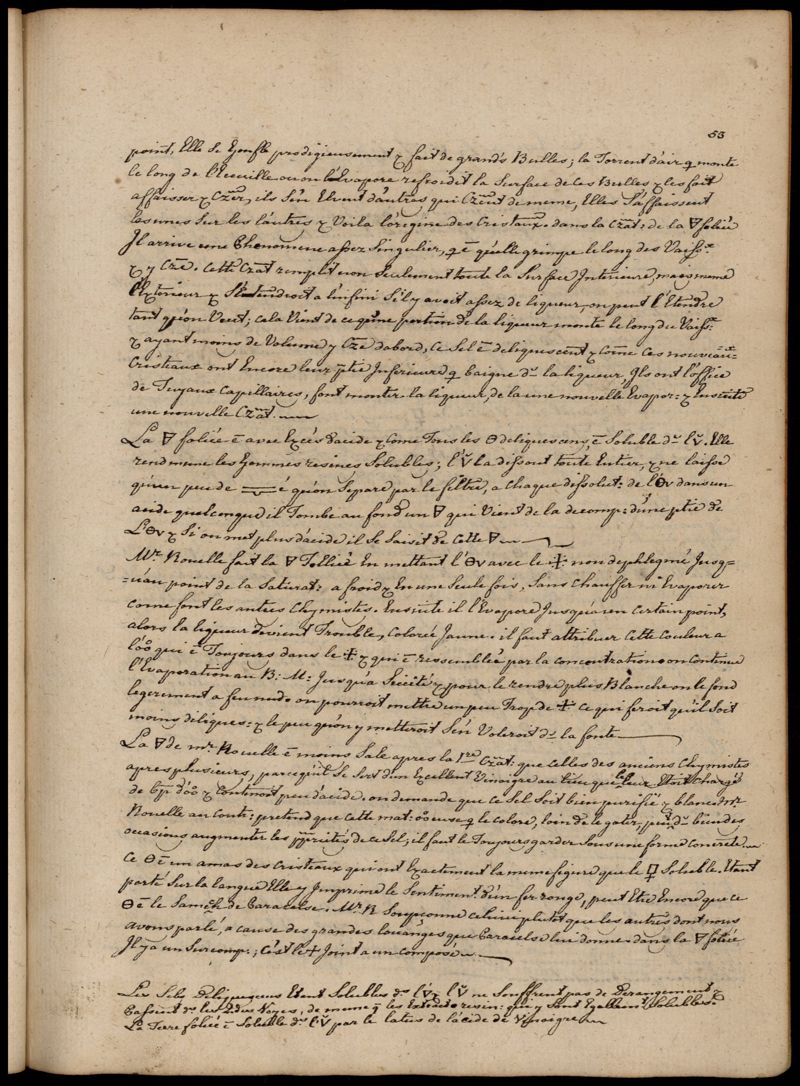 53
point, Elle se Gonfle prodigieusement & fait de grands Bulles; la Torrent d'air q̃ monte
le long de l'Ecuille ou on l'Evapore refroidit la Surface de ces Bulles & les fait
affaisser & Czer, ils s'en Elvent d'autres qui Czent de meme, Elles S'affaissent
les unes Sur les lautres & Voila l'origine des Cristaux dans la Czat: de la 🜃 foliée
Il arrive un Phenomene assez Singulier, q̃ ē qu'elle grimpe le long des Vaiss.x
& y Cze. Cette Czat remplit non Seulement toute la Surface Interieure, mais meme
l'Exterieur & S'etendroit a l'infini S'il y avoit assez de liqueur, on peut l'Etendre
tant qu'on Veut; cela Vient de ce qu'une portion de la liqueur monte le long du Vaiss.x
& ayant moins de Volume y Cze dabord, Ce Sel ē deliquescent & cõme ces nouveau-x
Cristiaux ont Encore leur ptie Inferieure q̃ baigne d.s la liqueur, Ils ont l'office
de Tuyaux Capillaires, font monter la liqueur, de la une nouvelle Evapor: & Ensuite
une nouvelle Czat.
La 🜃 foliée ē avec Excés d'acide & cõme Tous les 🜔 deliquescens, ē Soluble d.s l'ṽ. Elle
rend meme les Gommes resines Solubles; l'ṽ la dissout toute Entier, & ne laisse
qu'un peu de é qu'on Separe par le filtre, a chaque dissolut: de l'🜔v dans un
acide quelconque il Tombe au fond un 🜃 qui Vient de la decomp: d'une ptie de
L'🜔v & Si on met plus d'acide il se Saisit de Cette 🜃
Mr. Rouelle fait la 🜃 folliée En mettant l'🜔v avec le 🜊 non dephlegmé Jusq-
-u'au point de la Saturat: a froid & En une Seule fois, Sans chauffer ni Evaporer
come font les autres Chymistes. Ensuite il l'Evapore Jusqu'a un Certain point,
alors la liqueur devient Trouble, Colorée Jaune. il faut attribuer Cette Couleur a
l'oo qui ē Toujours dans le 🜊 & qui ē ressemblée par la concentration on continue
l'Evaporation au B: M: Jusqu'a Siccité & pour le rendre plus Blanche on le fond
legerement a feu nud on pourroit mettre un peu Trop de 🜊 ce qui feroit qu'il Soit
moins deliques: & le peu qu'on y metteroit S'en Voleroit d.s la fonte
La 🜃 de mr. Rouelle ē moins Sale apres la 1.re Czat: que celles des anciens Chymistes
apres plusieurs, parce qu'il Se Sert d'un Excellent Vinaigre au lieu que le leur Etoit Chargé
de bp d'oo & Contenoit peu d'acide. on demande que ce Sel Soit bien purifié & blanc. mr
Rouelle au Cont: pretend que cette mat: oo euse q̃ le colore, loin de le gater, peut d.s bien des
occasions augmenter les pprietés de ce Sel; il faut le Toujours garder Sous une forme concrete
ce 🜔 ē un amas des cristeaux qui ont Exactement la meme figure que le Soluble. Etant
porté Sur la langue Elle y Imprime le Sentiment d'un fer rouge, peut Etre Encore que ce
🜔 ē le Samech de Paracelse. Mr. R Soupçonne celui ci plutot que les autres dont nous
avons parlé, a cause des grandes louanges que Paracelse lui donne. dans la 🜃 foliée
Il y a un Surcomp.; C'est le 🜊 Joint a un composé
Les Sels Deliquescens Etant Solubles d.s l'🜄 & l'ṽ ne Souffrent pas de Derangement
passent d.s les 2des Voyes, de meme q̃ les Extractoresin: qui y Sont Egallem.t Solubles.
La Terre foliée ē Soluble d.s l'ṽ par le latus de l'acide de Vinaigre